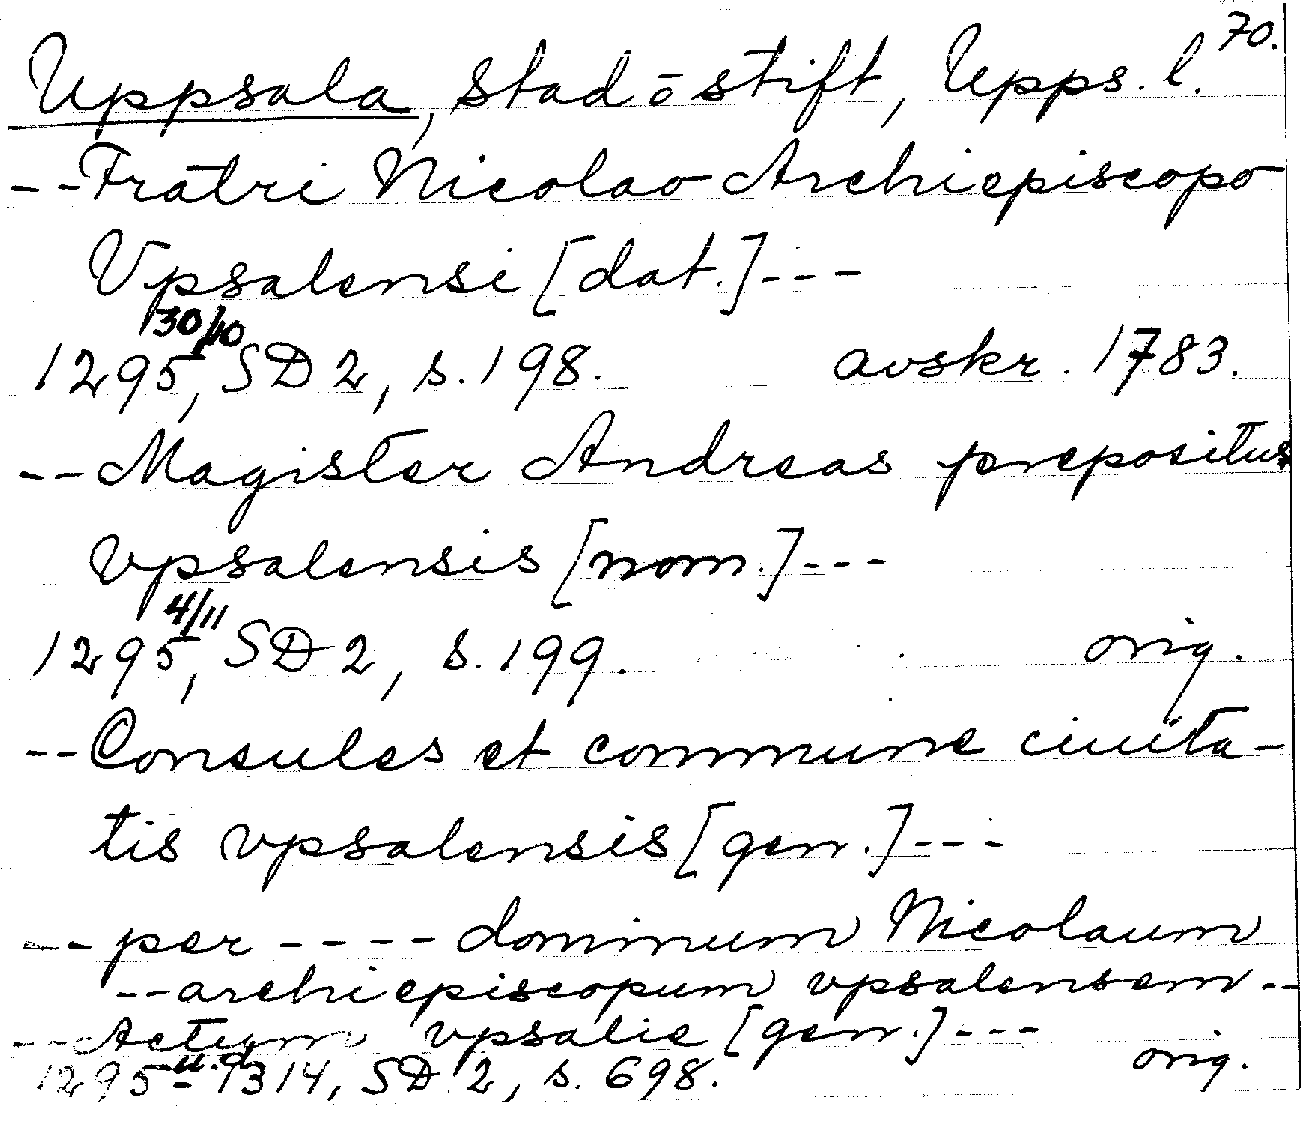 70.
Uppsala, stad o stift, Upps. l.
-- Fratri Nicolao Archiepiscopo
Vpsalensi [dat.] ---
30/10
1295, SD 2, s. 198. avskr. 1783.
-- Magister Andreas prepositus
vpsalensis [nom.] ---
4/11
1295, SD 2, s. 199. orig.
-- Consules et commune ciuita-
tis vpsalensis [gen.] ---
-- per ---- dominum Nicolaum
-- archiepiscopum vpsalensem --
-- Actum vpsalie [gen.] ---
u.d.
1295-1314, SD 2, s. 698. orig.